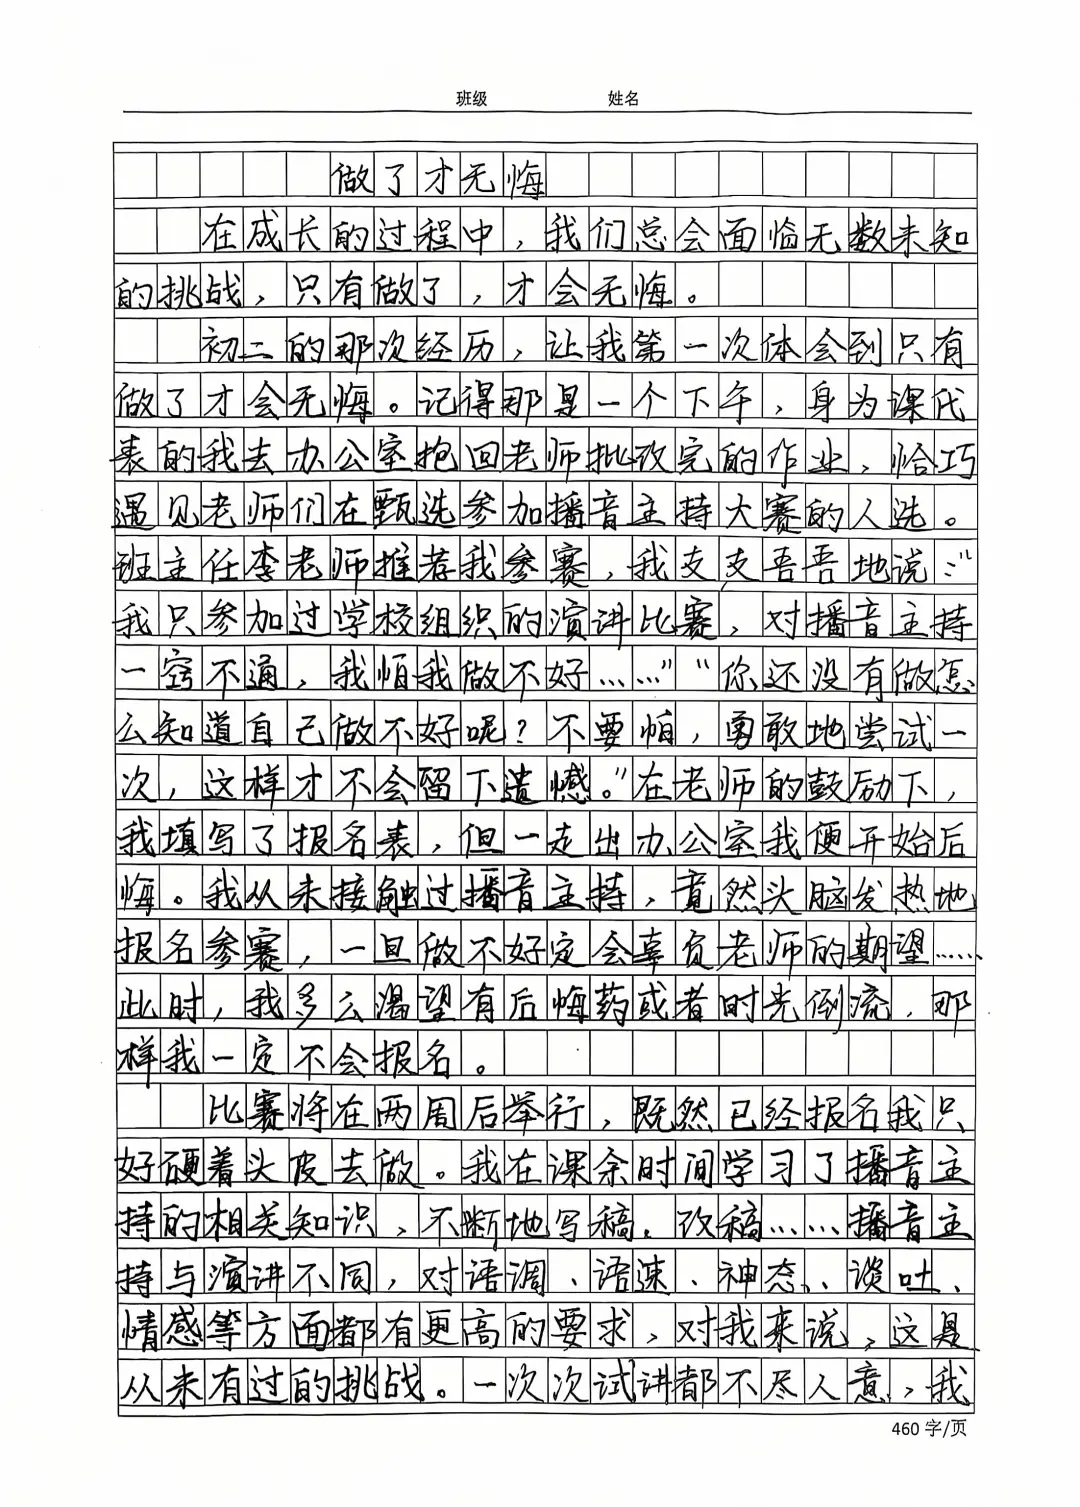 班级 姓名
做了才无悔
在成长的过程中，我们总会面临无数未知
的挑战，只有做了，才会无悔。
初二的那次经历，让我第一次体会到只有
做了才会无悔。记得那是一个下午，身为课代
表的我去办公室抱回老师批改完的作业，恰巧
遇见老师们在甄选参加播音主持大赛的人选。
班主任李老师推荐我参赛，我支支吾吾地说：“
我只参加过学校组织的演讲比赛，对播音主持
一窍不通，我怕我做不好……”“你还没有做怎
么知道自己做不好呢？不要怕，勇敢地尝试一
次，这样才不会留下遗憾。”在老师的鼓励下，
我填写了报名表，但一走出办公室我便开始后
悔。我从未接触过播音主持，竟然头脑发热地
报名参赛，一旦做不好定会辜负老师的期望……
此时，我多么渴望有后悔药或者时光倒流，那
样我一定不会报名。
比赛将在两周后举行，既然已经报名我只
好硬着头皮去做。我在课余时间学习了播音主
持的相关知识，不断地写稿，改稿……播音主
持与演讲不同，对语调、语速、神态、谈吐、
情感等方面都有更高的要求，对我来说，这是
从来有过的挑战。一次次试讲都不尽人意，我
460 字/页